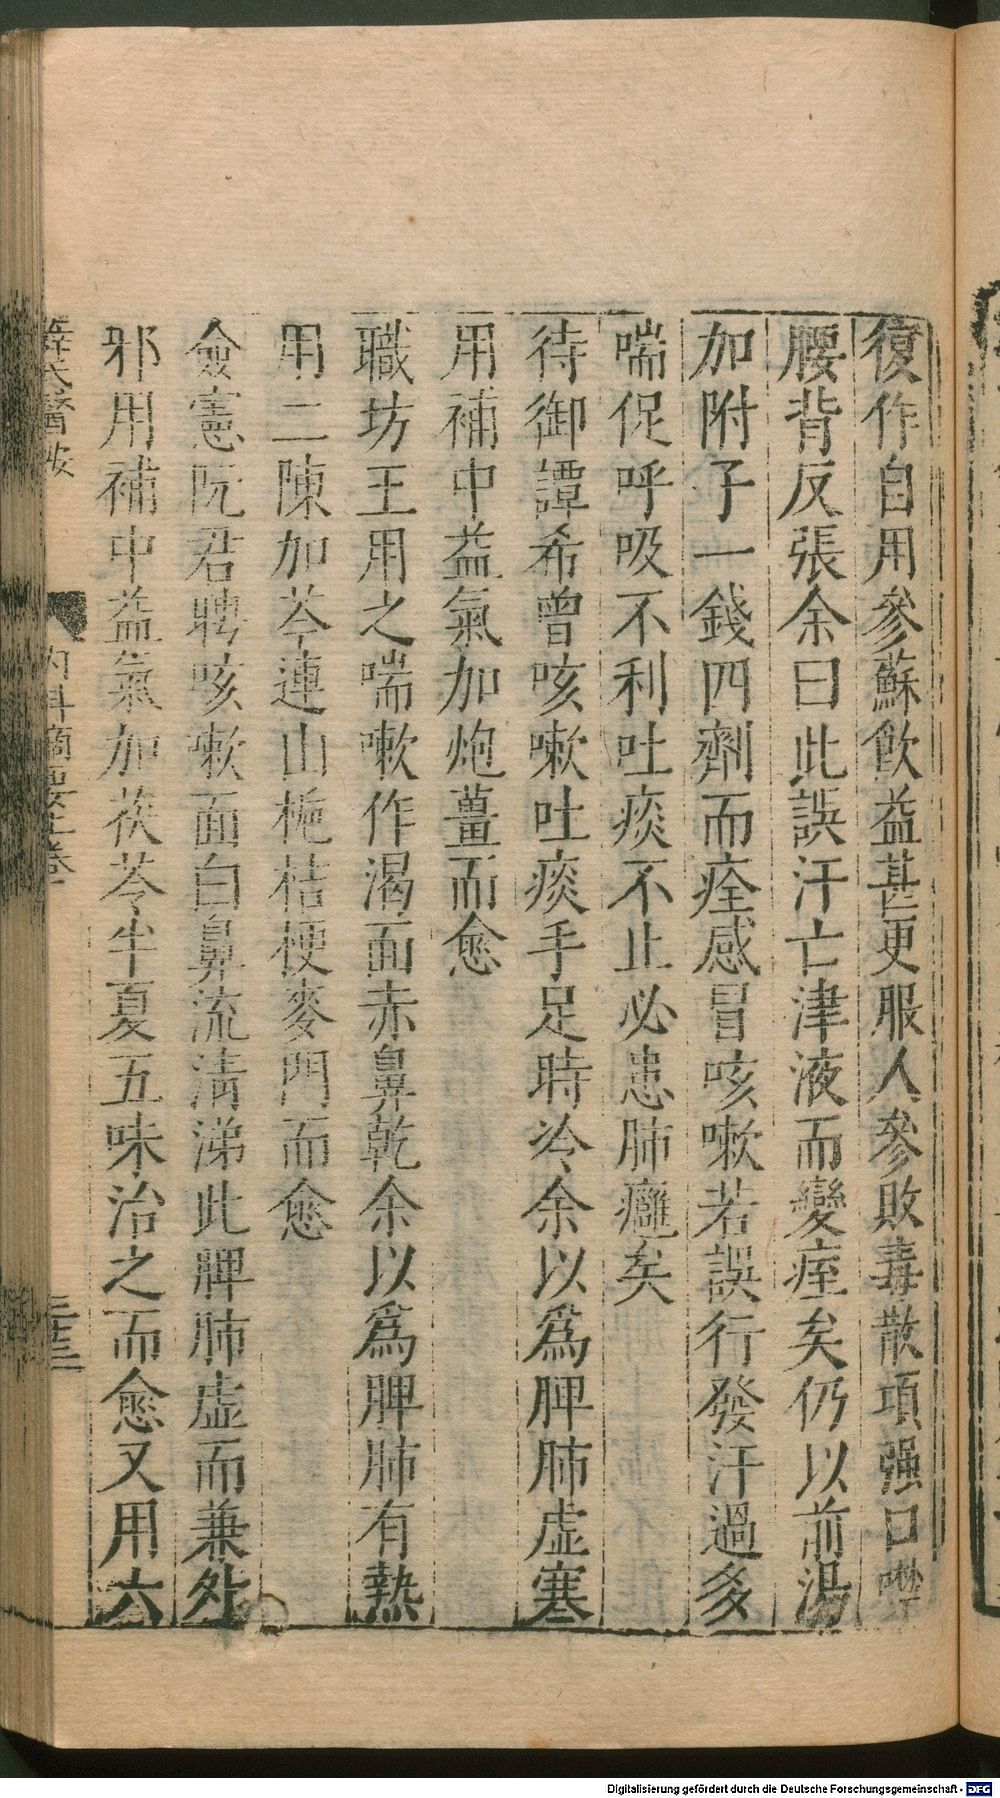 復作自用參蘇飲益甚更服人參敗毒散項强口噤
腰背反張余曰此誤汗亡津液而變痓矣仍以前湯
加附子一錢四劑而痊感冒咳嗽若誤行發汗過多
喘促呼吸不利吐痰不止必患肺癰矣
待御譚希曾咳嗽吐痰手足時冷余以爲脾肺虛寒
用補中益氣加炮薑而愈
職坊王用之喘嗽作渴面赤鼻乾余以爲脾肺有熱
用二陳加芩連山梔桔梗麥門而愈
僉憲阮君聘咳嗽面白鼻流清涕此脾肺虛而兼外
邪用補中益氣加茯苓半夏五味治之而愈又用六
薛氏醫按
內科摘要上卷
三十三
Digitalisierung gefördert durch die Deutsche Forschungsgemeinschaft - DFG